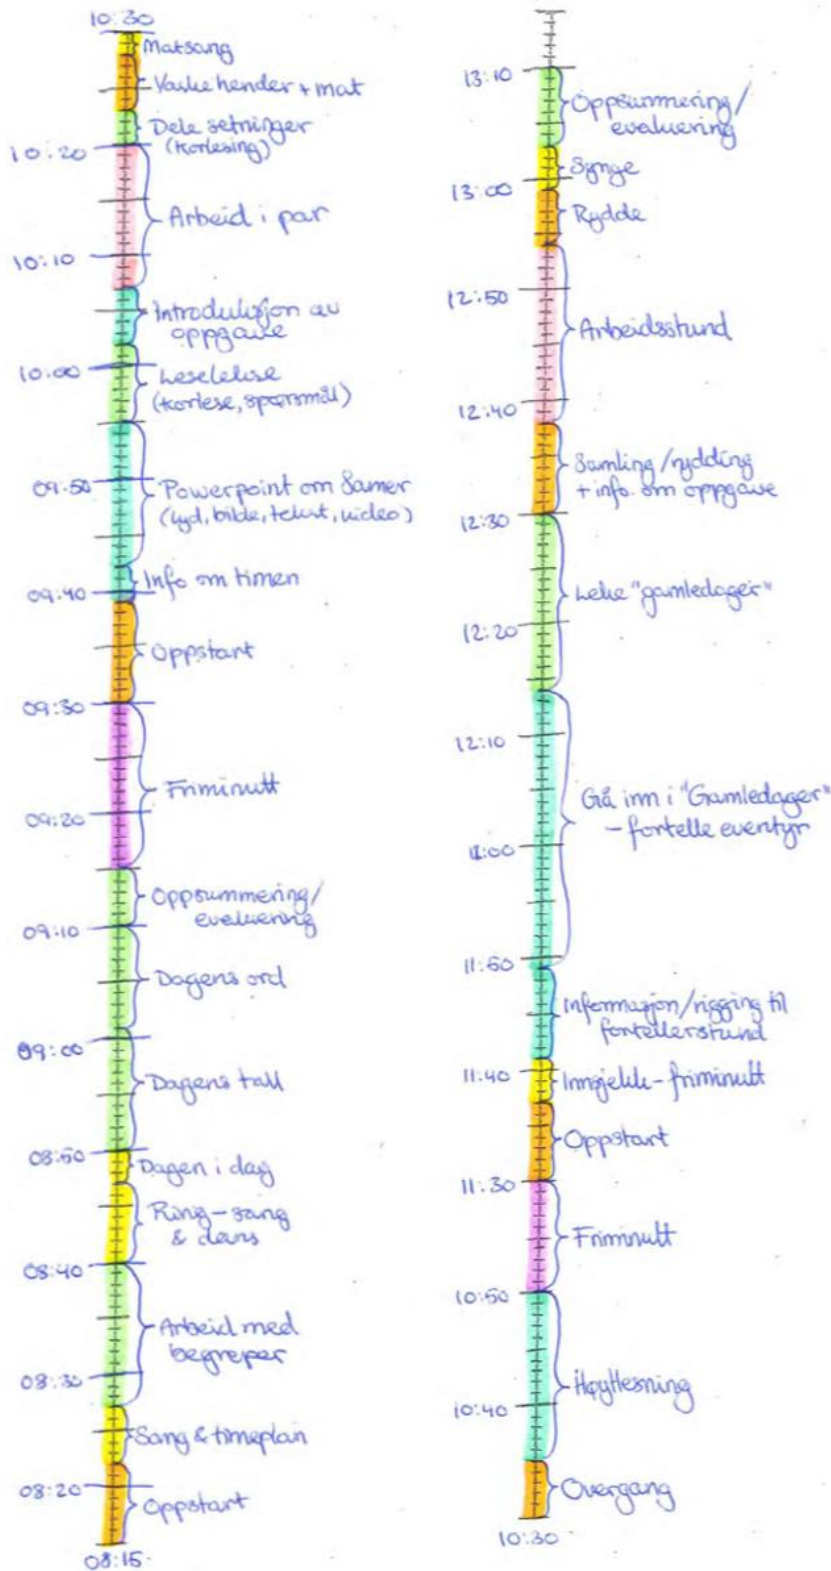 10:30
Matsang
Vaske hender + mat
Dele setninger
(korlesing)
10:20
Arbeid i par
10:10
Introduksjon av
oppgave
10:00
Leselekse
(korlese, spørsmål)
09:50
Powerpoint om Samer
(lyd, bilde, tekst, video)
Info om timen
09:40
Oppstart
09:30
Friminutt
09:20
Oppsummering/
evaluering
09:10
Dagens ord
09:00
Dagens tall
08:50
Dagen i dag
Ring-sang
& dans
08:40
Arbeid med
begreper
08:30
Sang & timeplan
08:20
Oppstart
08:15
13:10
Oppsummering/
evaluering
Synge
13:00
Rydde
12:50
Arbeidsstund
12:40
Samling/rydding
+ info. om oppgave
12:30
Leke "gamledager"
12:20
12:10
Gå inn i "Gamledager"
- fortelle eventyr
12:00
11:50
Informasjon/rigging til
fortellerstund
11:40
Innsjekk - friminutt
Oppstart
11:30
Friminutt
10:50
Høytlesning
10:40
Overgang
10:30